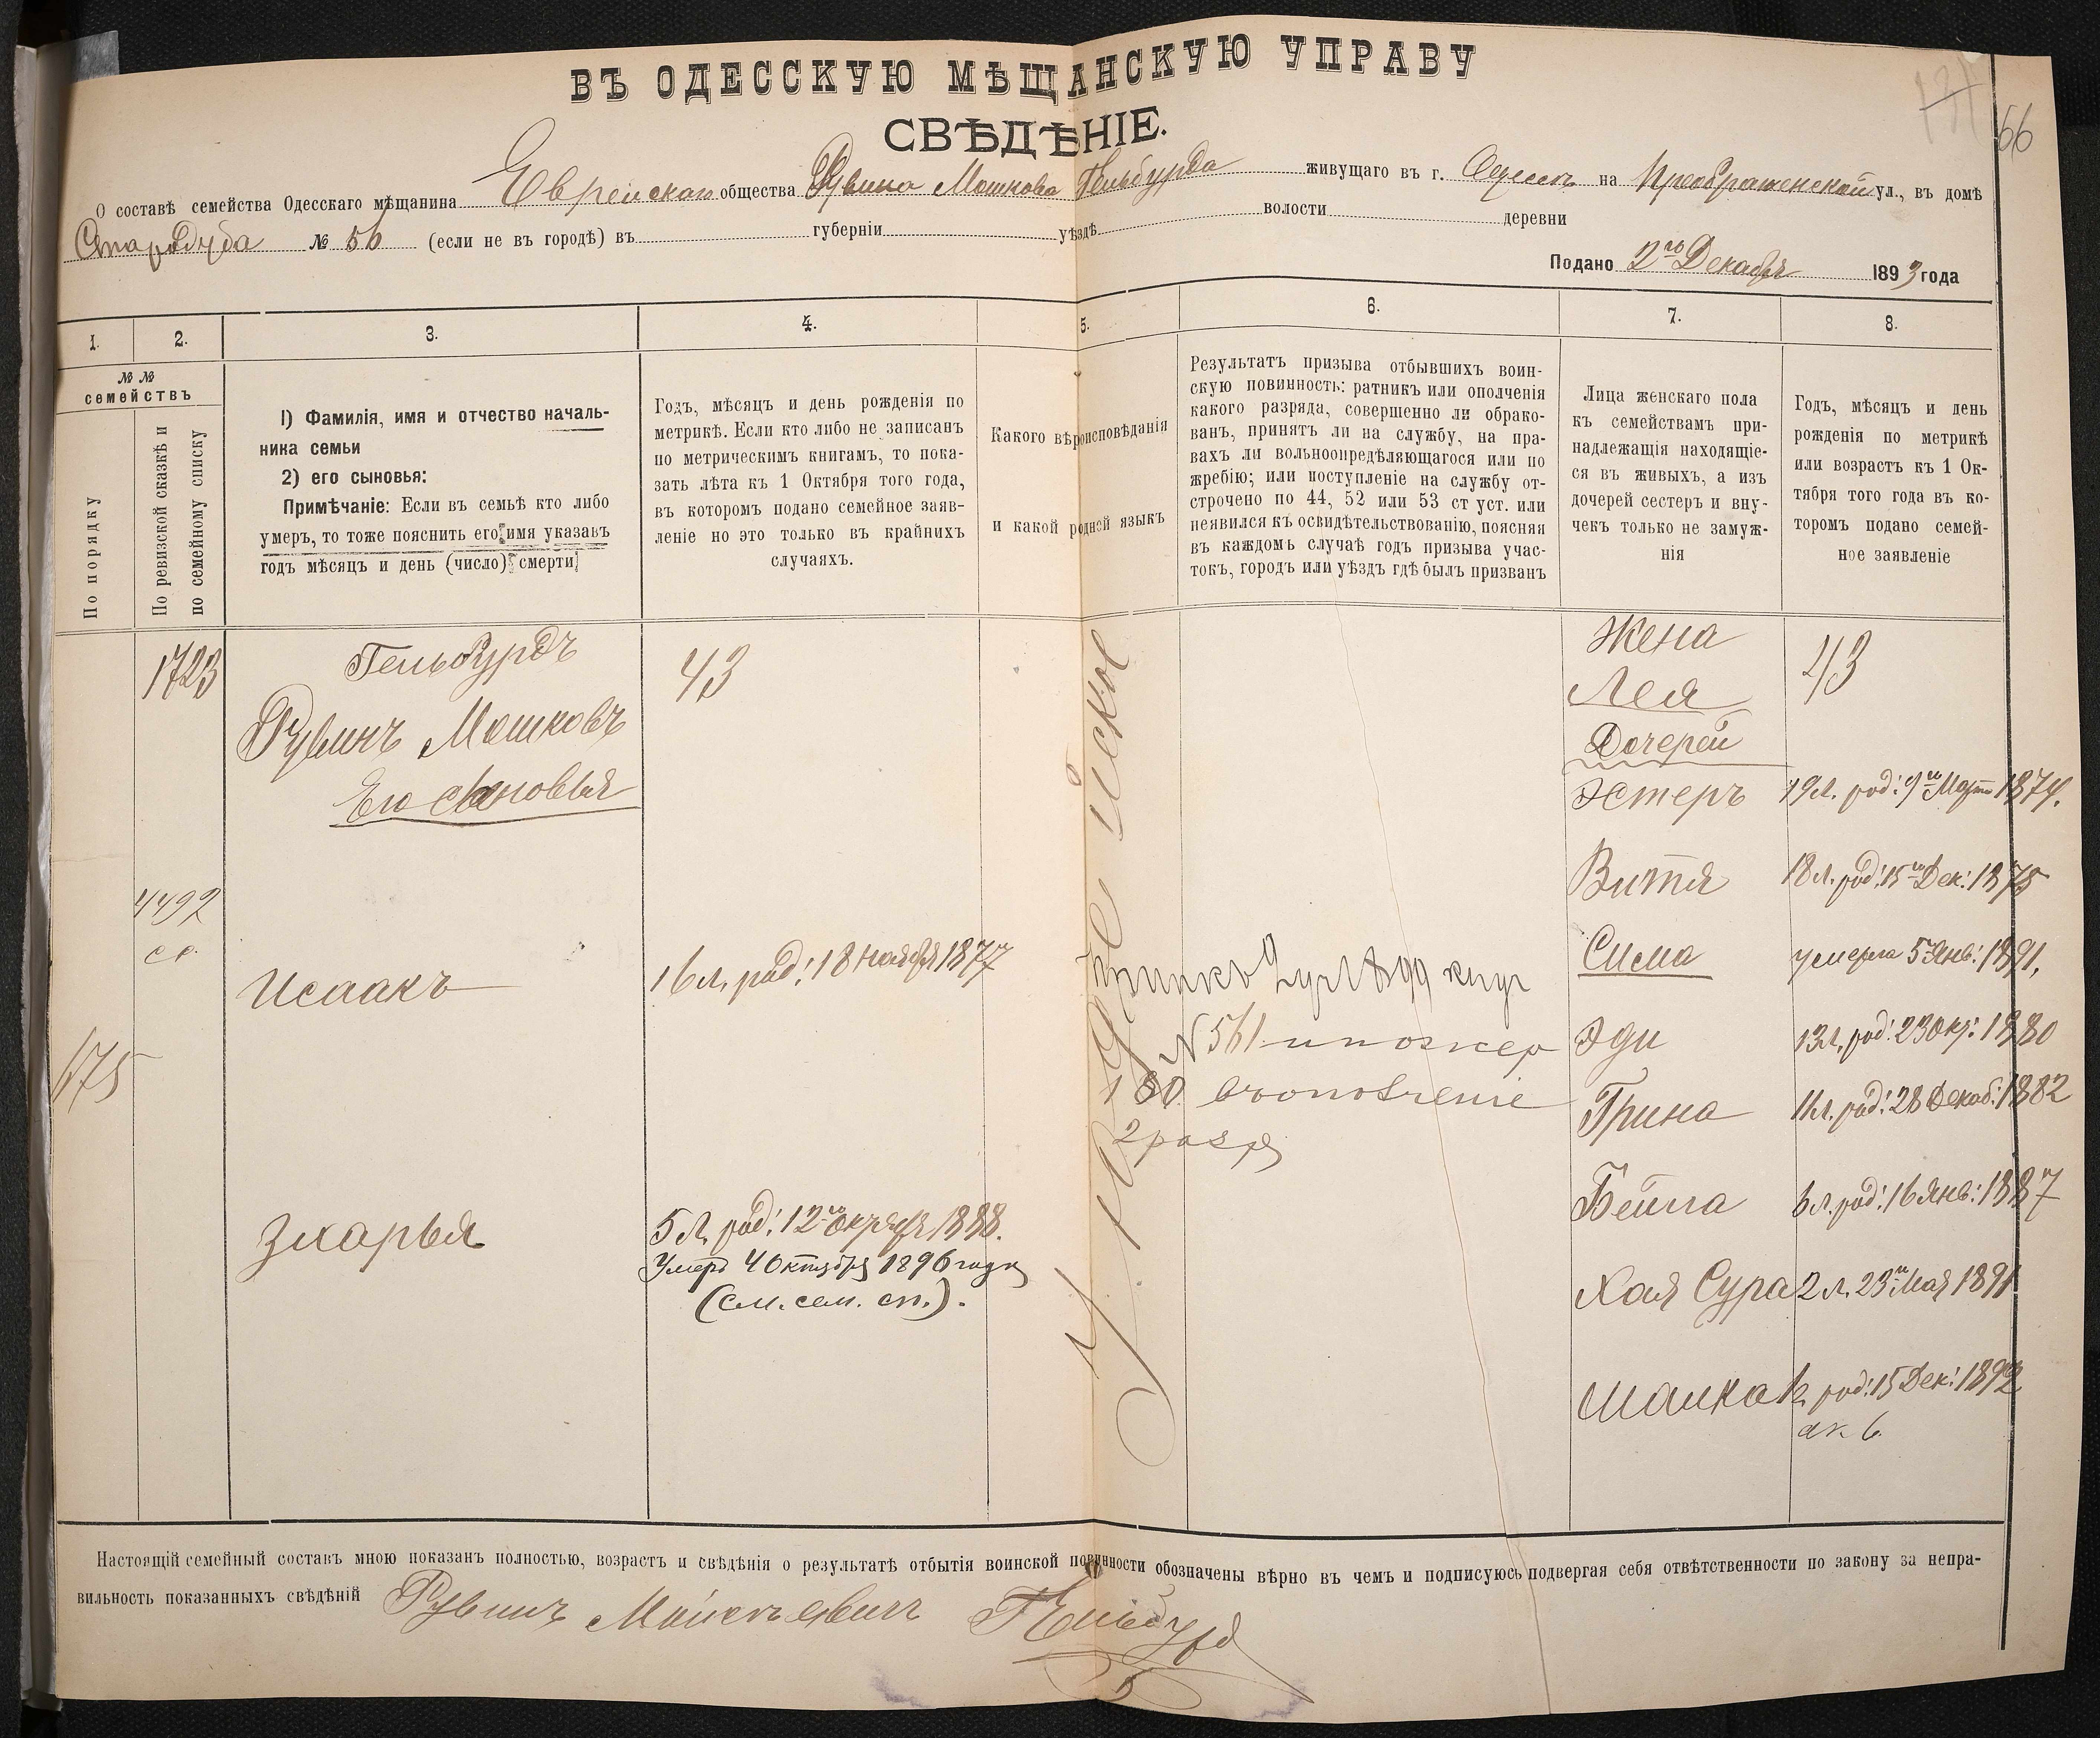 ВЪ ОДЕССКУЮ МѢЩАНСКУЮ УПРАВУ
СВѢДѢНІЕ.
66
О составѣ семейства Одесскаго мѣщанина Еврейскаго общества Рувина Мошкова Гельбурда живущаго въ г. Одессѣ на Преображенской ул., въ домѣ
Стародуба № 56 (если не въ городѣ) въ губерніи уѣздѣ волости деревни
Подано 2го Декабря 1893 года
1. 2. 3. 4. 5. 6. 7. 8.
№ №
семействъ
По порядку
По ревизской сказкѣ и
по семейному списку
1) Фамилія, имя и отчество началь-
ника семьи
2) его сыновья:
Примѣчаніе: Если въ семьѣ кто либо
умеръ, то тоже пояснить его имя указавъ
годъ мѣсяцъ и день (число) смерти
Годъ, мѣсяцъ и день рожденія по
метрикѣ. Если кто либо не записанъ
по метрическимъ книгамъ, то пока-
зать лѣта къ 1 Октября того года,
въ которомъ подано семейное заяв-
леніе но это только въ крайнихъ
случаяхъ.
Какого вѣроисповѣданія
и какой родной языкъ
Результатъ призыва отбывшихъ воин-
скую повинность: ратникъ или ополченія
какого разряда, совершенно ли обрако-
ванъ, принятъ ли на службу, на пра-
вахъ ли вольноопредѣляющагося или по
жребію; или поступленіе на службу от-
строчено по 44, 52 или 53 ст уст. или
неявился къ освидѣтельствованію, поясняя
въ каждомъ случаѣ годъ призыва учас-
токъ, городъ или уѣздъ гдѣ былъ призванъ
Лица женскаго пола
къ семействамъ при-
надлежащія находящіе-
ся въ живыхъ, а изъ
дочерей сестеръ и вну-
чекъ только не замуж-
нія
Годъ, мѣсяцъ и день
рожденія по метрикѣ
или возрастъ къ 1 Ок-
тября того года въ ко-
торомъ подано семей-
ное заявленіе
1723
Гельбурдъ
Рувинъ Мошковъ
43
Его сыновья
4492
с с.
Исаакъ
16 л. род: 18 ноября 1877
175
Зхарья
5 л. род: 12го октября 1888.
Умеръ 4 Октября 1896 года
(см. сем. сп.).
Іудейское
1899
№ 561
въ ополченіе
2 разр
Жена
Лея
43
Дочерей
Эстеръ 19 л. род: 9го Марта 1874.
Витя 18 л. род: 15го Дек: 1875
Сима умерла 5 Янв: 1891.
Эди 13 л. род: 23 Окт: 1880
Грина 11 л. род: 28 Декаб: 1882
Бейла 6 л. род: 16 Янв: 1887
Хая Сура 2 л. 23го Мая 1891
род: 15 Дек: 1892
Настоящій семейный составъ мною показанъ полностью, возрастъ и свѣдѣнія о результатѣ отбытія воинской повинности обозначены вѣрно въ чемъ и подписуюсь подвергая себя отвѣтственности по закону за непра-
вильность показанныхъ свѣдѣній Рувинъ Мойсѣевичъ Гельбурд